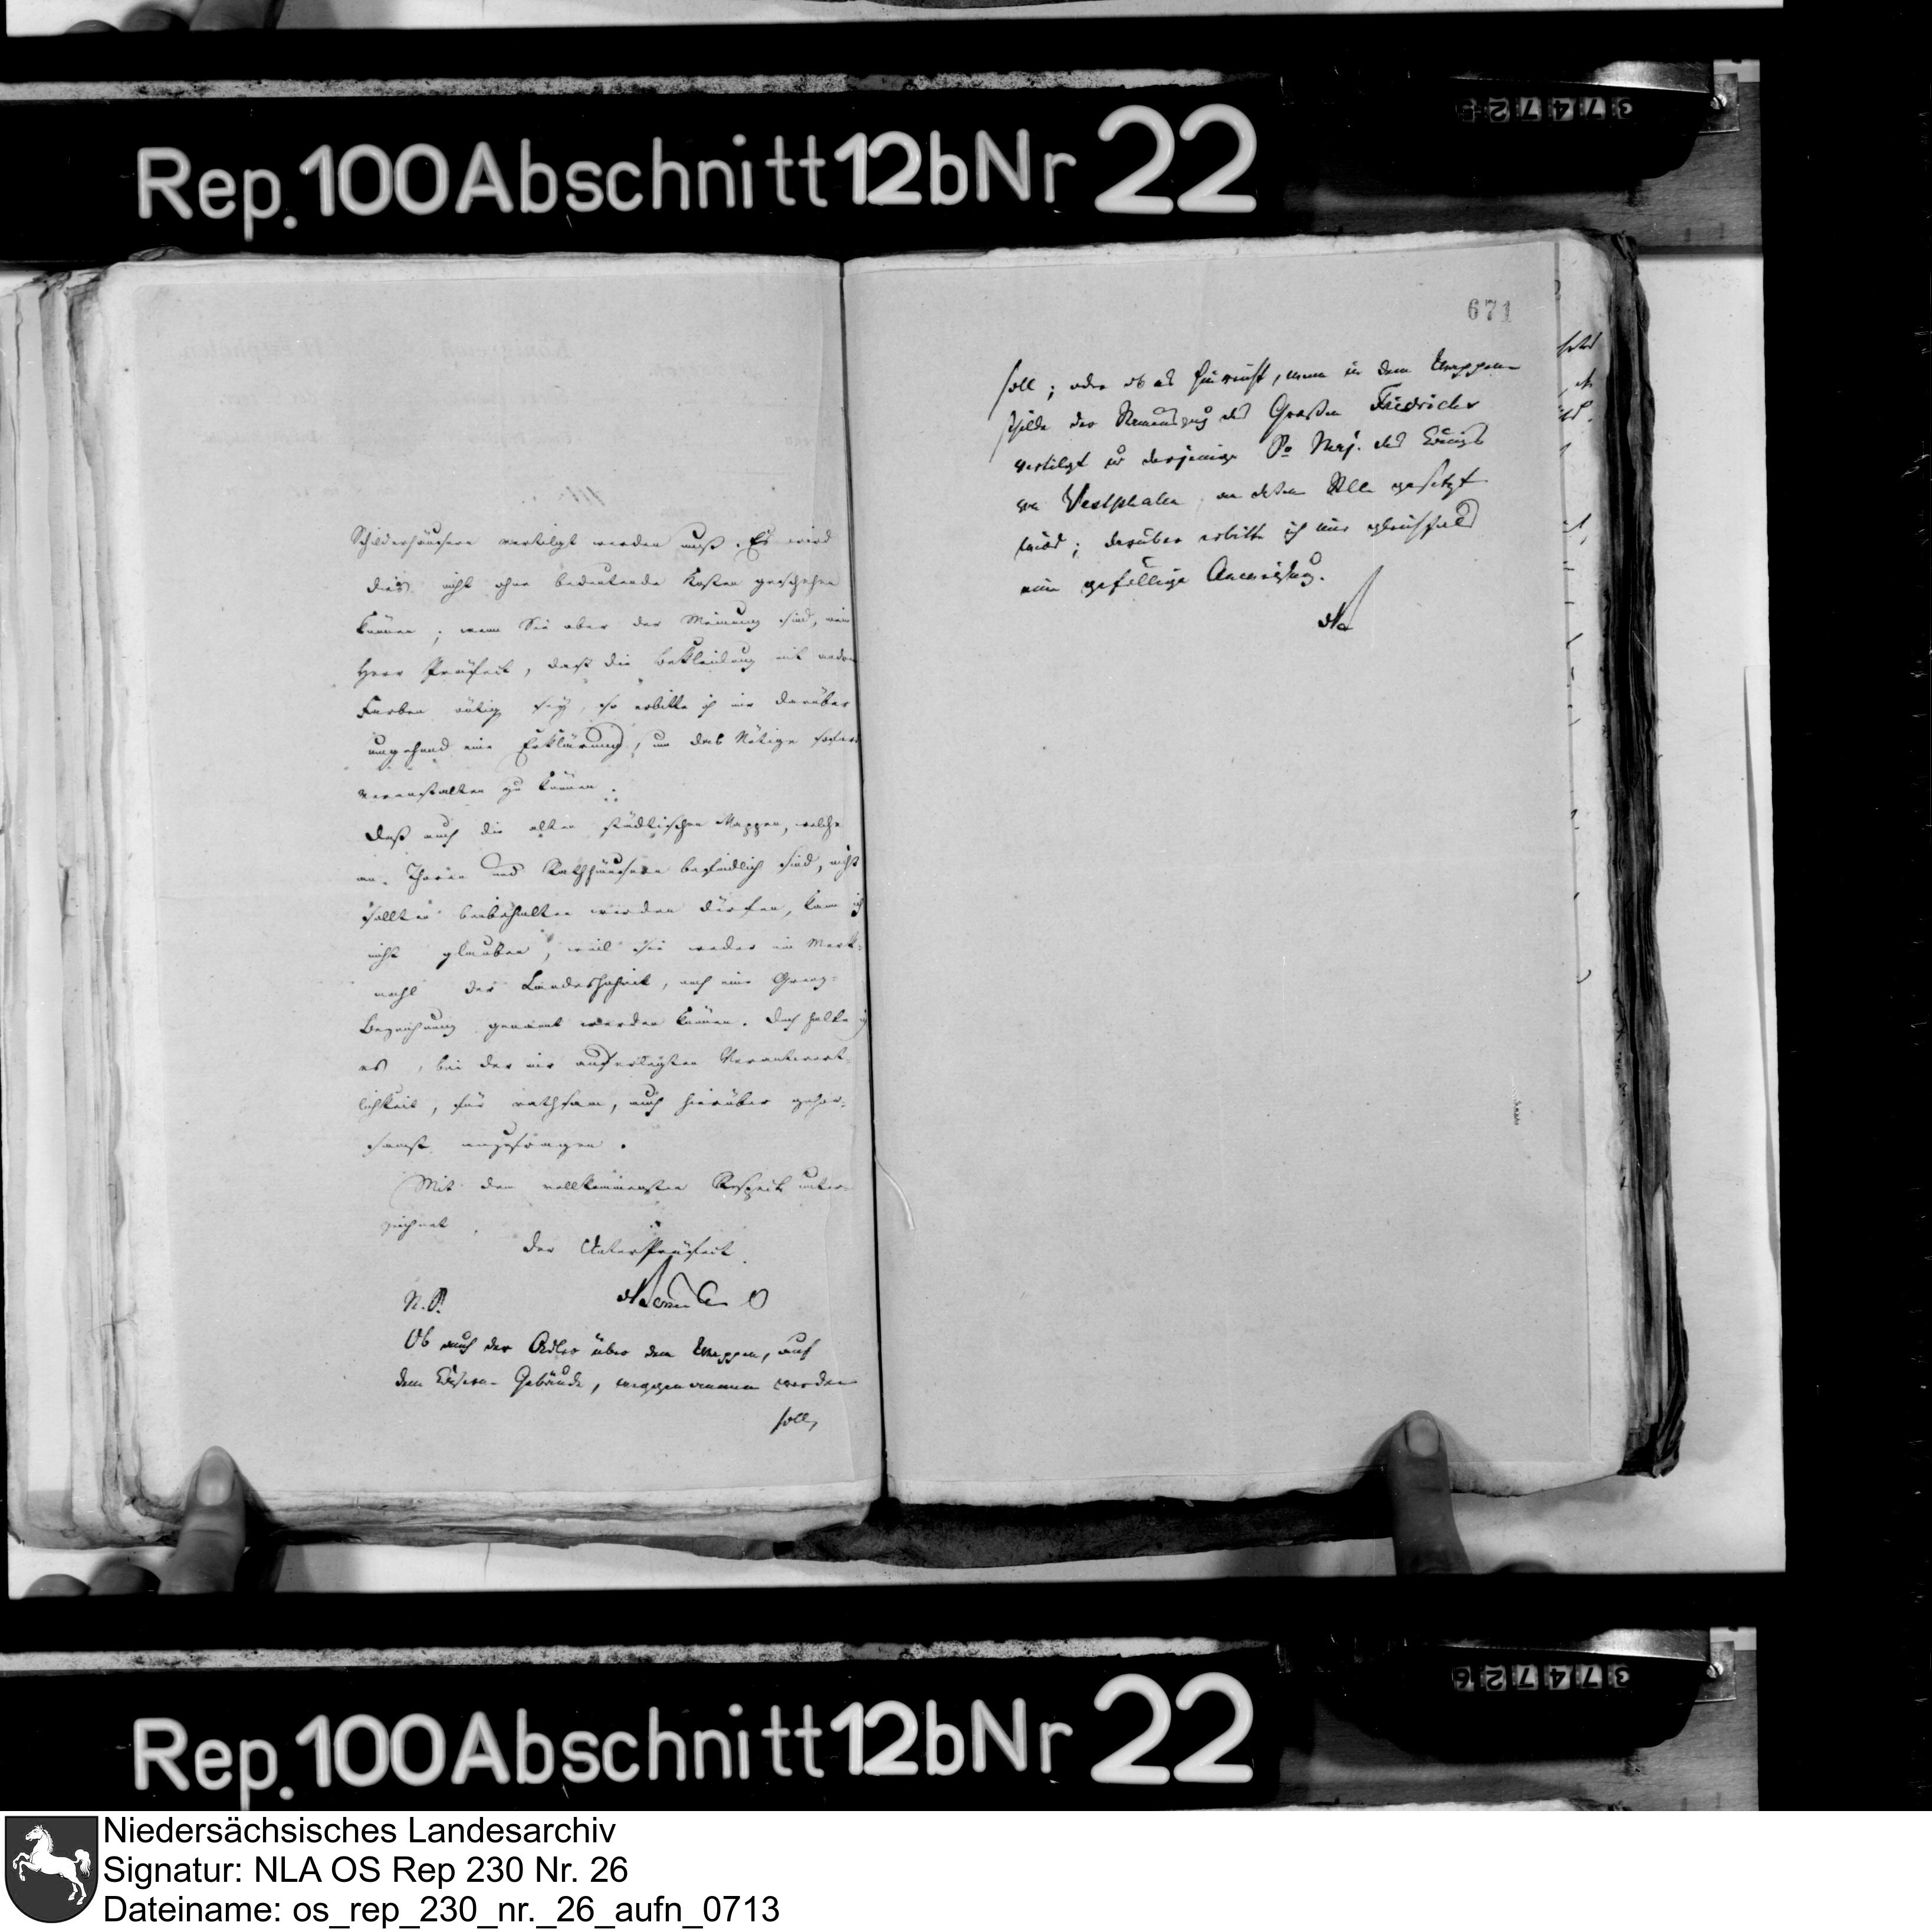 374725
Rep. 100 Abschnitt 12b Nr 22
Schilderhäusern vertilgt werden muß. Es wird
dies nicht ohne bedeutende Kosten geschehen
können; wenn Sie aber der Meinung sind, mein
Herr Präfect, daß die Bekleidung mit andern
Farben nötig sey, so erbitte ich mir darüber
umgehend eine Erklärung, um das Nötige sofort
veranstalten zu können.
Daß auch die alten städtischen Wappen, welche
an Thoren und Rathhäusern befindlich sind, nicht
sollten beibehalten werden dürfen, kann ich
nicht glauben, weil sie weder ein Merk-
mahl der Landeshoheit, noch eine Grenz-
Bezeichnung genannt werden können. Doch halte ich
es, bei der mir auferlegten Verantwort-
lichkeit, für rathsam, auch hierüber gehor-
samst anzufragen.
Mit dem vollkommensten Respect unter-
zeichnet
der UnterPräfect
N. S.
Ob auch der Adler über dem Wappen, auf
dem Gebäude, weggenommen werden
soll,
671
soll; oder ob es hinreicht, wenn in dem Wappen-
schilde der Namenszug des Großen Friedrichs
vertilgt und derjenige Sr Maj. des Königs
von Westphalen an dessen Stelle gesetzt
wird; darüber erbitte ich mir gleichfalls
eine gefällige Anweisung.
374726
Rep. 100 Abschnitt 12b Nr 22
Niedersächsisches Landesarchiv
Signatur: NLA OS Rep 230 Nr. 26
Dateiname: os_rep_230_nr._26_aufn_0713